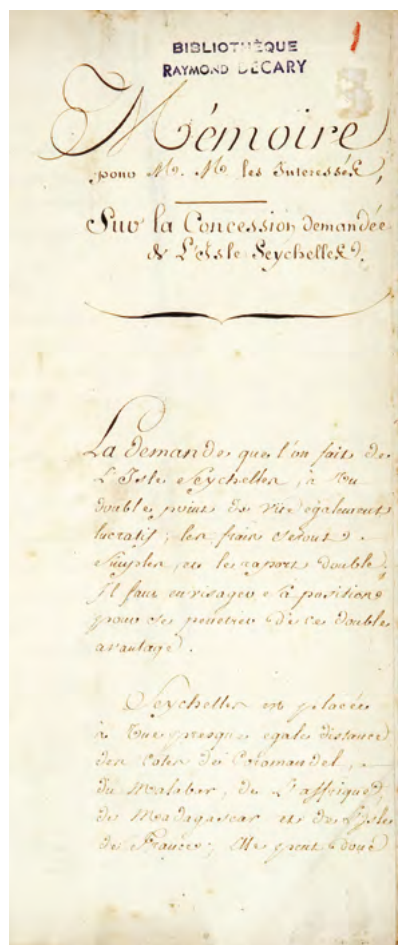 BIBLIOTHÈQUE
RAYMOND DECARY
Mémoire
pour M. M. les Interessés,
Sur la Concession demandée
de L'Isle Seychelles.
La demande que l'on fait de
L'Isle Seychelles, a un
double point de vüe également
lucratif; les frais seront
simples, et le raport double.
Il faut envisager sa position
pour se penétrer de ce double
avantage.
Seychelles est placée
à une presque egale distance
des cotes de Coromandel,
du Malabar, de L'affrique
de Madagascar et de L'Isle
de France; Elle peut donc